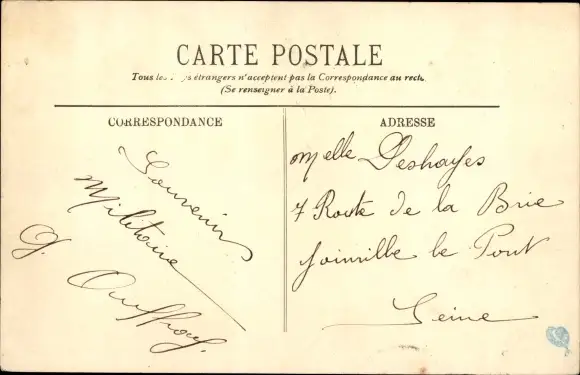 CARTE POSTALE
Tous les pays étrangers n'acceptent pas la Correspondance au recto.
(Se renseigner à la Poste).
CORRESPONDANCE
Souvenir
Militaire
G. Auffroy.
ADRESSE
Melle Deshayes
7 Route de la Brie
Joinville le Pont
Seine